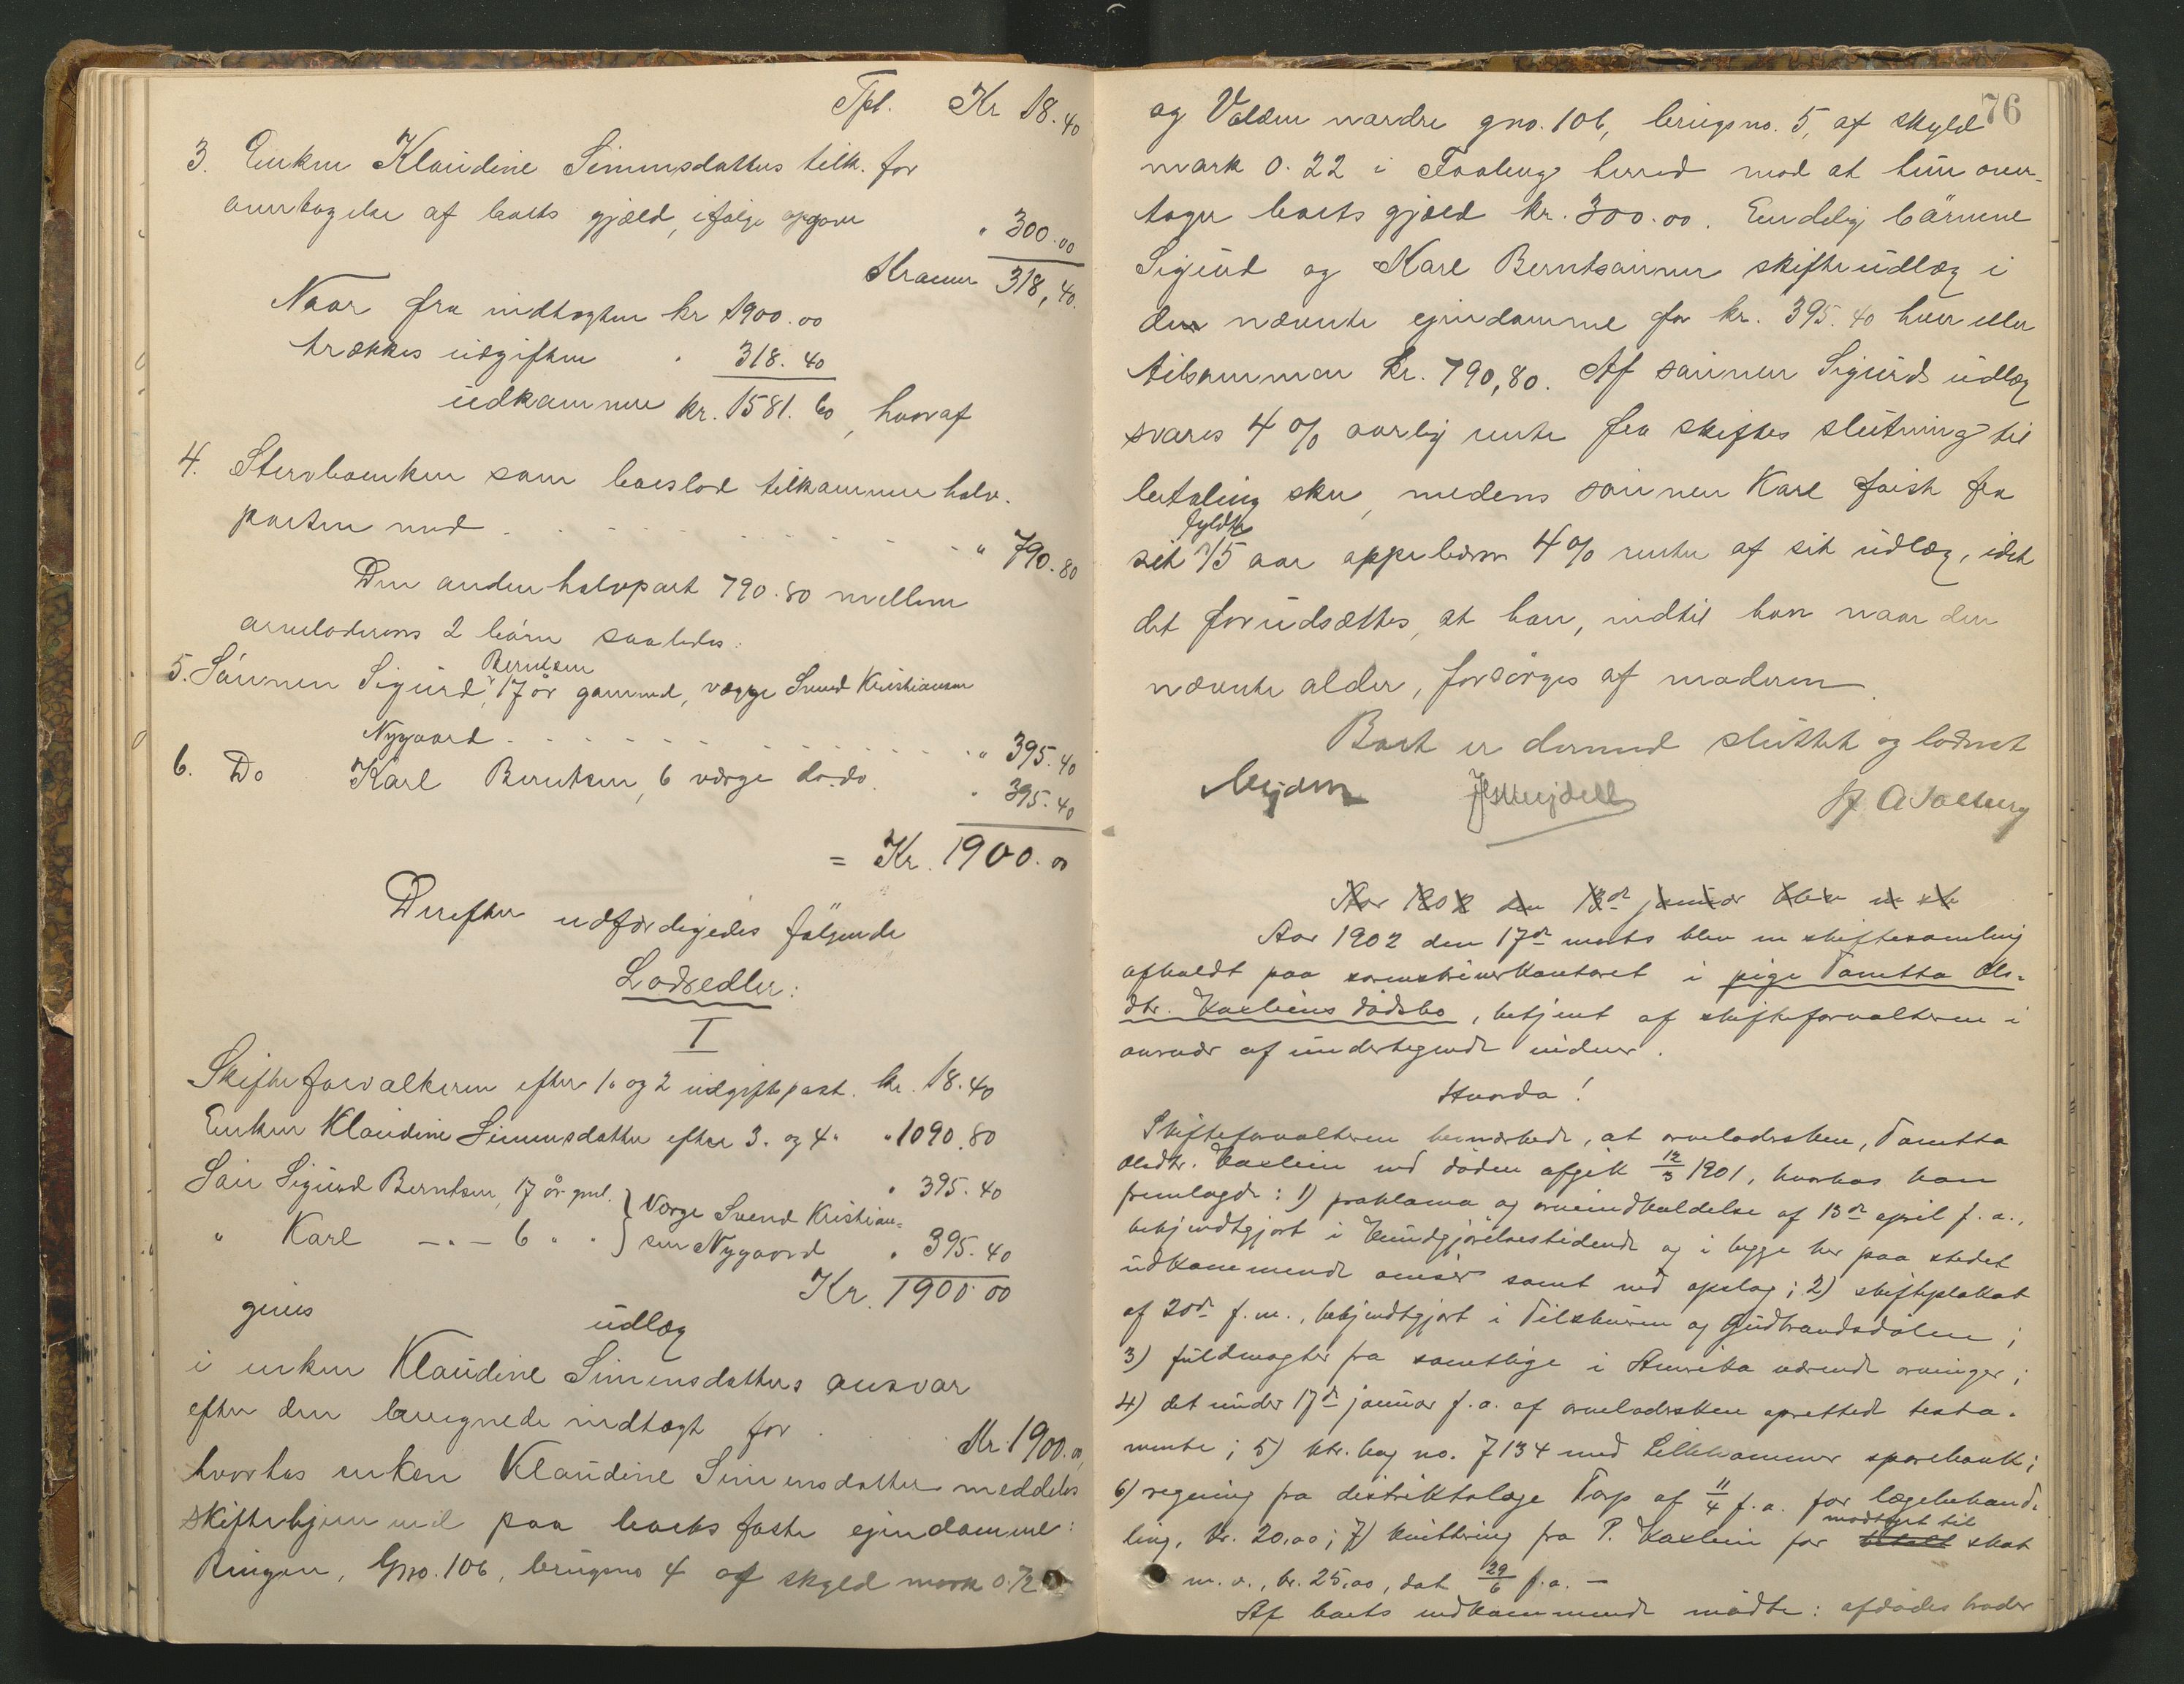 Tpt. Kr 18.40
3. Enken Klaudine Simensdatters tilk. for
overtagelse af boets gjæld, ifølge opgave " 300.00
Kroner 318,40.
Naar fra indtægten kr 1900.00
trækkes udgiften " 318.40
udkommer kr. 1581.60, hvoraf
4. Stervboenken som boeslod tilkommer halv-
parten med . . . . . . " 790.80
Den anden halvpart 790.80 mellem
arveladerens 2 børn saaledes:
5. Sønnen Sigurd Berntsen, 17 år gammel, værge Svend Kristiansen
Nygaard . . . . . . " 395.40
6. Do Karl Berntsen, 6 værge do. do. " 395.40
= Kr. 1900.00
Derefter udfærdigedes følgende
Lodsedler:
I
Skifteforvalteren efter 1. og 2 udgiftspost. kr. 18.40
Enken Klaudine Simensdatter efter 3. og 4. " 1090.80
Søn Sigurd Berntsen, 17 år gml. } Værge Svend Kristian= " 395.40
" Karl —"— 6 " " } sen Nygaard " 395.40
Kr. 1900.00
gives udlæg
i enken Klaudine Simensdatters ansvar
efter den beregnede indtægt for . . . Kr. 1900.00,
hvorhos enken Klaudine Simensdatter meddeles
skiftehjemmel paa boets faste ejendomme:
Ringen, Gno. 106, brugsno 4 af skyld mark 0.72
76
og Volden nordre gno. 106, brugsno. 5, af skyld
mark 0.22 i Faaberg herred mod at hun over-
tager boets gjæld kr. 300.00. Endelig børnene
Sigurd og Karl Berntsønner skifteudlæg i
den nævnte ejendomme for kr. 395.40 hver eller
tilsammen kr. 790,80. Af sønnen Sigurds udlæg
svares 4 % aarlig rente fra skiftes slutning til
betaling sker, medens sønnen Karl først fra
sit fyldte 15 aar oppebærer 4 % rente af sit udlæg, idet
det forudsættes, at han, indtil han naar den
nævnte alder, forsørges af moderen.
Boet er dermed sluttet og lodnet
A Solberg
Aar 1902 den 13de januar blev en ski
Aar 1902 den 17de marts blev en skiftesamling
afholdt paa sorenskriverkontoret i pige Tonetta Ols-
dtr. Kaxleins dødsbo, betjent af skifteforvalteren i
overvær af undertegnede vidner.
Hvorda!
Skifteforvalteren bemærkede, at arveladersken, Tonetta
Olsdtr. Kaxlein ved døden afgik 12/3 1901, hvorhos han
fremlagde: 1) proklama og arveindkaldelse af 13de april f. a.,
bekjendtgjort i Kundgjørelsestidende og i begge her paa stedet
udkommende aviser samt ved opslag; 2) skifteplakat
af 20de f. m., bekjendtgjort i Tilskueren og Gudbrandsdølen;
3) fuldmagter fra samtlige i Amerika værende arvinger;
4) det under 17de januar f. a. af arveladersken oprettede testa-
mente; 5) ktr. bog no. 7134 med Lillehammer sparebank;
6) regning fra distriktslæge Torp af 11/4 f. a. for lægebehand-
ling, kr. 20.00; 7) kvittering fra P. Kaxlein for betalt modtaget til skat
m. v., kr. 25.00, dat 29/6 f. a. —
Af boets vedkommende mødte: afdødes broder